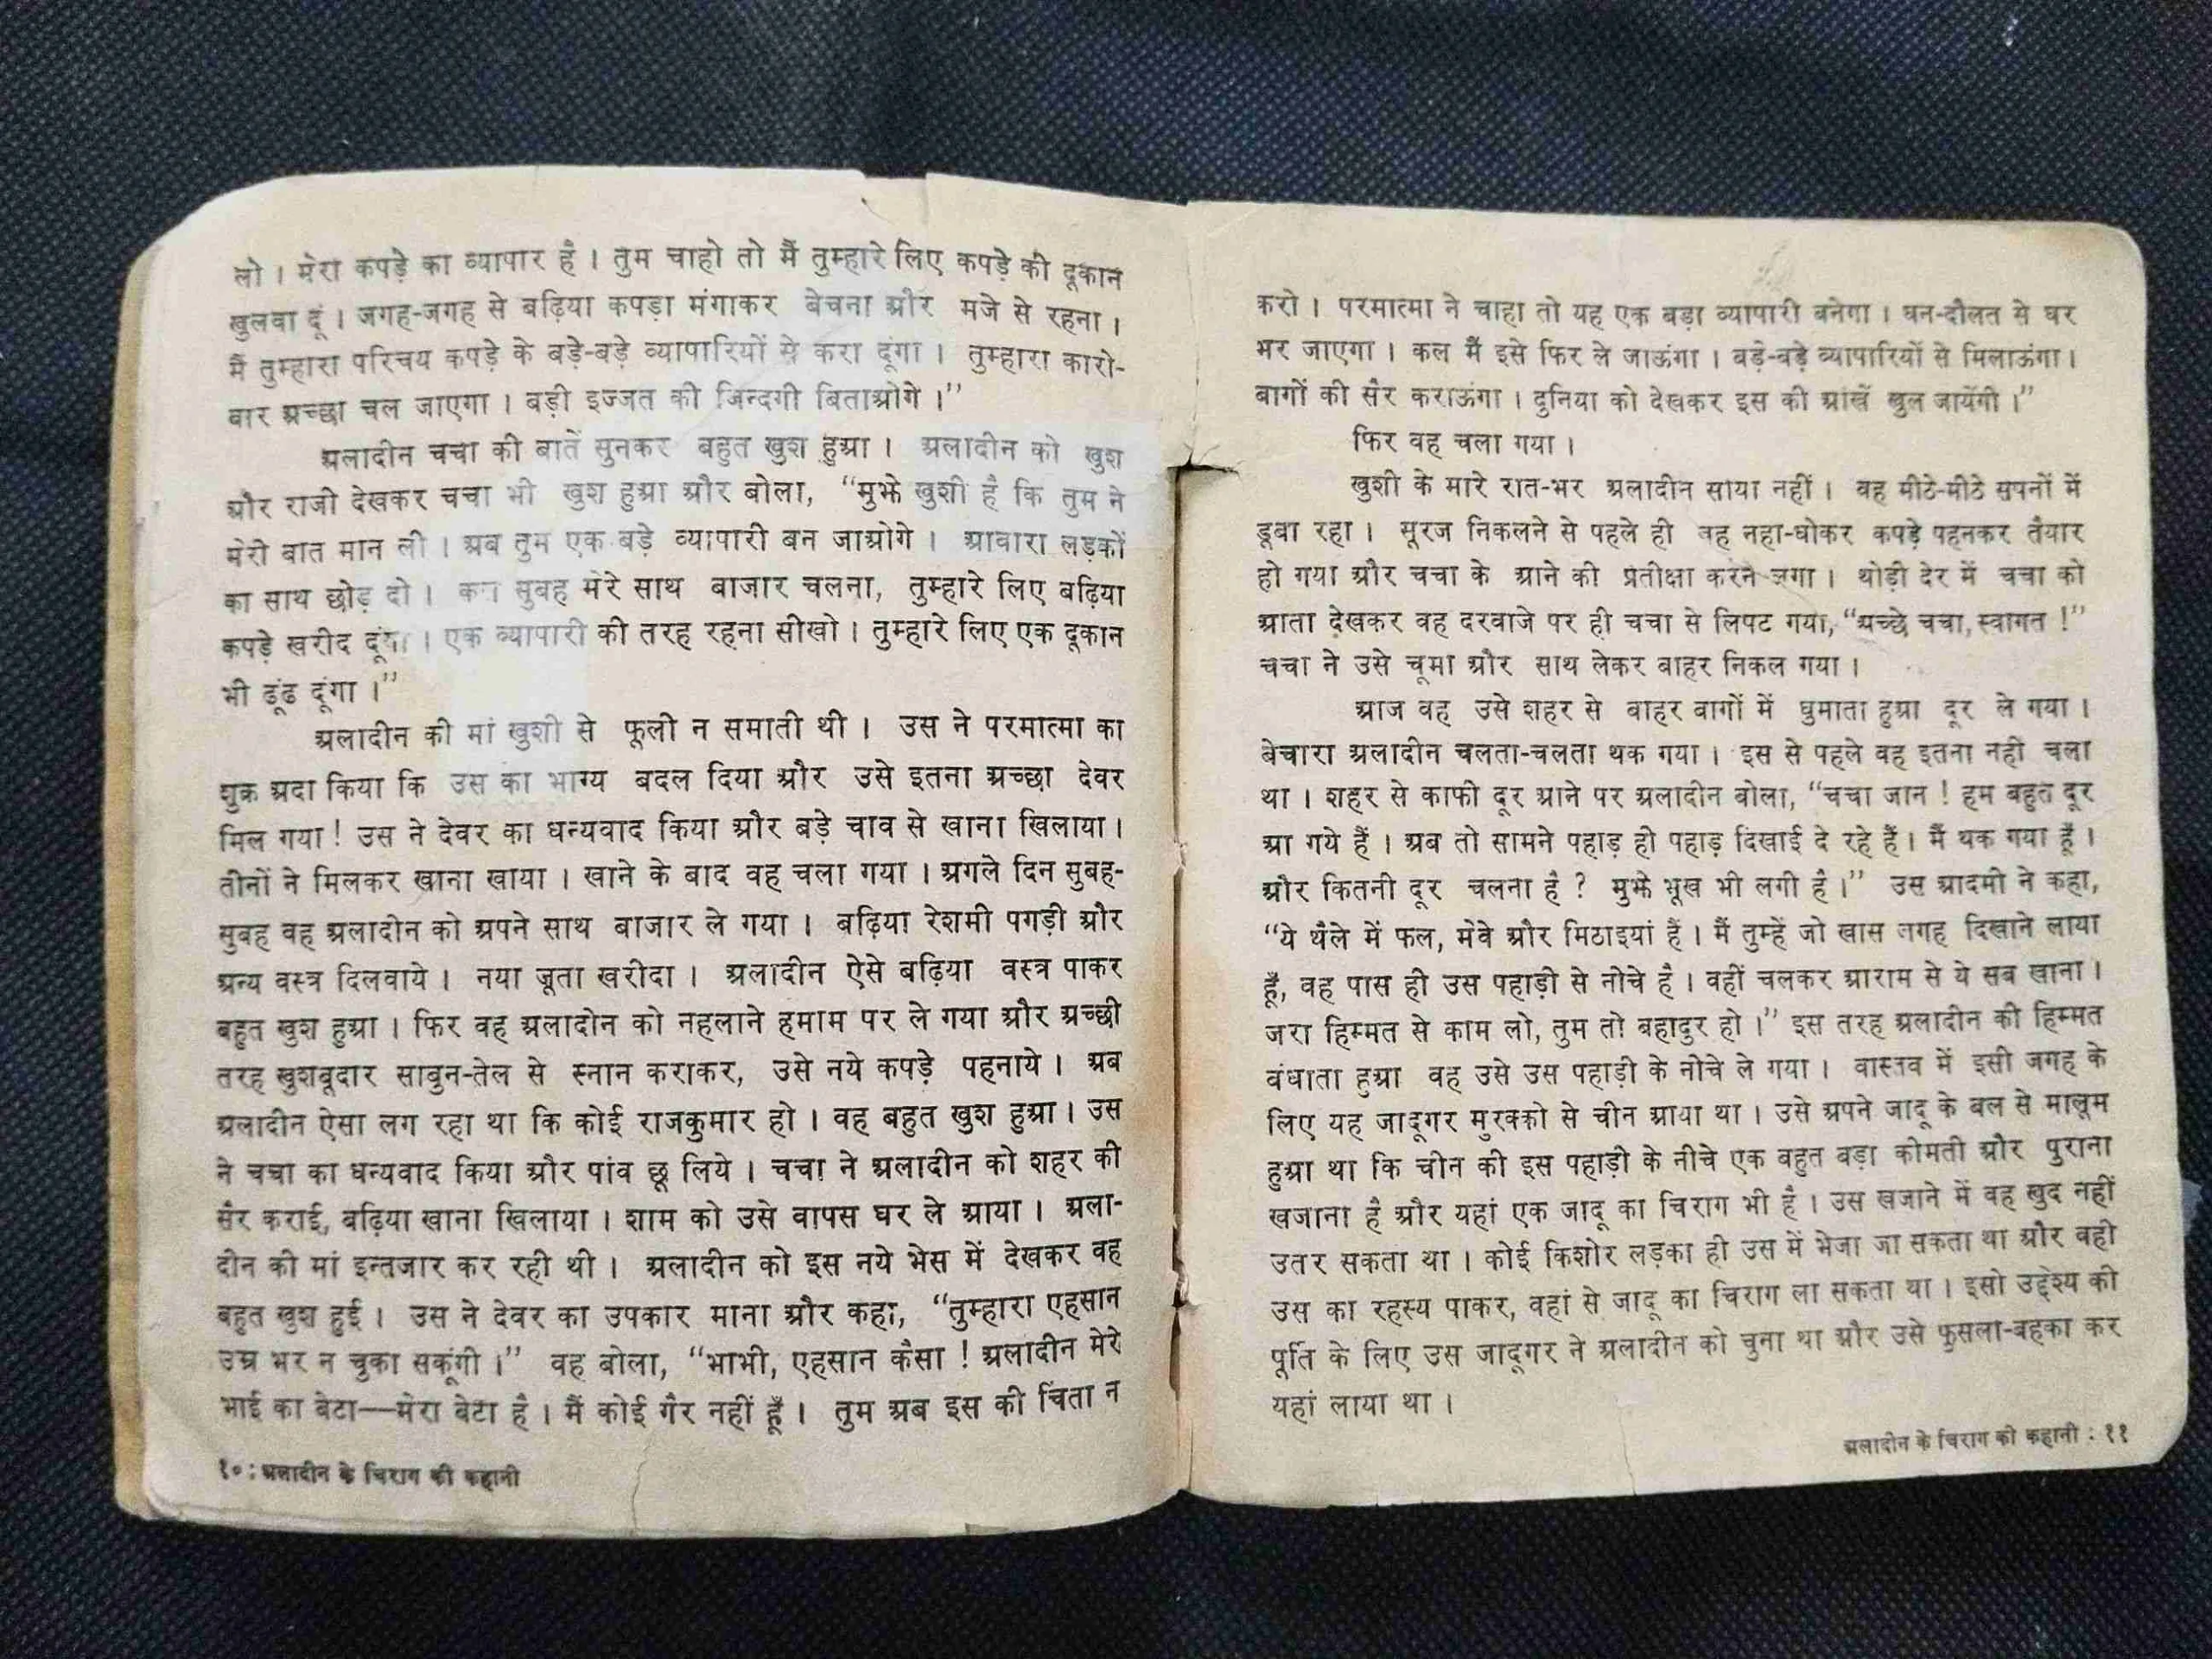 लो । मेरा कपड़े का व्यापार है । तुम चाहो तो मैं तुम्हारे लिए कपड़े की दूकान
खुलवा दूं । जगह-जगह से बढ़िया कपड़ा मंगाकर बेचना और मजे से रहना ।
मैं तुम्हारा परिचय कपड़े के बड़े-बड़े व्यापारियों से करा दूंगा । तुम्हारा कारो-
बार अच्छा चल जाएगा । बड़ी इज्जत की जिन्दगी बिताओगे ।”
अलादीन चचा की बातें सुनकर बहुत खुश हुआ । अलादीन को खुश
और राजी देखकर चचा भी खुश हुआ और बोला, “मुझे खुशी है कि तुम ने
मेरी बात मान ली । अब तुम एक बड़े व्यापारी बन जाओगे । आवारा लड़कों
का साथ छोड़ दो । कल सुबह मेरे साथ बाजार चलना, तुम्हारे लिए बढ़िया
कपड़े खरीद दूंगा । एक व्यापारी की तरह रहना सीखो । तुम्हारे लिए एक दूकान
भी ढूंढ दूंगा ।”
अलादीन की मां खुशी से फूली न समाती थी । उस ने परमात्मा का
शुक्र अदा किया कि उस का भाग्य बदल दिया और उसे इतना अच्छा देवर
मिल गया ! उस ने देवर का धन्यवाद किया और बड़े चाव से खाना खिलाया ।
तीनों ने मिलकर खाना खाया । खाने के बाद वह चला गया । अगले दिन सुबह-
सुबह वह अलादीन को अपने साथ बाजार ले गया । बढ़िया रेशमी पगड़ी और
अन्य वस्त्र दिलवाये । नया जूता खरीदा । अलादीन ऐसे बढ़िया वस्त्र पाकर
बहुत खुश हुआ । फिर वह अलादीन को नहलाने हमाम पर ले गया और अच्छी
तरह खुशबूदार साबुन-तेल से स्नान कराकर, उसे नये कपड़े पहनाये । अब
अलादीन ऐसा लग रहा था कि कोई राजकुमार हो । वह बहुत खुश हुआ । उस
ने चचा का धन्यवाद किया और पांव छू लिये । चचा ने अलादीन को शहर की
सैर कराई, बढ़िया खाना खिलाया । शाम को उसे वापस घर ले आया । अला-
दीन की मां इन्तजार कर रही थी । अलादीन को इस नये भेस में देखकर वह
बहुत खुश हुई । उस ने देवर का उपकार माना और कहा, “तुम्हारा एहसान
उम्र भर न चुका सकूंगी ।” वह बोला, “भाभी, एहसान कैसा ! अलादीन मेरे
भाई का बेटा—मेरा बेटा है । मैं कोई गैर नहीं हूँ । तुम अब इस की चिंता न
१० : अलादीन के चिराग की कहानी
करो । परमात्मा ने चाहा तो यह एक बड़ा व्यापारी बनेगा । धन-दौलत से घर
भर जाएगा । कल मैं इसे फिर ले जाऊंगा । बड़े-बड़े व्यापारियों से मिलाऊंगा ।
बागों की सैर कराऊंगा । दुनिया को देखकर इस की आंखें खुल जायेंगी ।”
फिर वह चला गया ।
खुशी के मारे रात-भर अलादीन सोया नहीं । वह मीठे-मीठे सपनों में
डूबा रहा । सूरज निकलने से पहले ही वह नहा-धोकर कपड़े पहनकर तैयार
हो गया और चचा के आने की प्रतीक्षा करने लगा । थोड़ी देर में चचा को
आता देखकर वह दरवाजे पर ही चचा से लिपट गया, “अच्छे चचा, स्वागत !”
चचा ने उसे चूमा और साथ लेकर बाहर निकल गया ।
आज वह उसे शहर से बाहर बागों में घुमाता हुआ दूर ले गया ।
बेचारा अलादीन चलता-चलता थक गया । इस से पहले वह इतना नहीं चला
था । शहर से काफी दूर आने पर अलादीन बोला, “चचा जान ! हम बहुत दूर
आ गये हैं । अब तो सामने पहाड़ ही पहाड़ दिखाई दे रहे हैं । मैं थक गया हूँ ।
और कितनी दूर चलना है ? मुझे भूख भी लगी है ।” उस आदमी ने कहा,
“ये थैले में फल, मेवे और मिठाइयां हैं । मैं तुम्हें जो खास जगह दिखाने लाया
हूँ, वह पास ही उस पहाड़ी से नीचे है । वहीं चलकर आराम से ये सब खाना ।
जरा हिम्मत से काम लो, तुम तो बहादुर हो ।” इस तरह अलादीन की हिम्मत
बंधाता हुआ वह उसे उस पहाड़ी के नीचे ले गया । वास्तव में इसी जगह के
लिए यह जादूगर मुरक्को से चीन आया था । उसे अपने जादू के बल से मालूम
हुआ था कि चीन की इस पहाड़ी के नीचे एक बहुत बड़ा कीमती और पुराना
खजाना है और यहां एक जादू का चिराग भी है । उस खजाने में वह खुद नहीं
उतर सकता था । कोई किशोर लड़का ही उस में भेजा जा सकता था और वही
उस का रहस्य पाकर, वहां से जादू का चिराग ला सकता था । इसी उद्देश्य की
पूर्ति के लिए उस जादूगर ने अलादीन को चुना था और उसे फुसला-बहका कर
यहां लाया था ।
अलादीन के चिराग की कहानी : ११